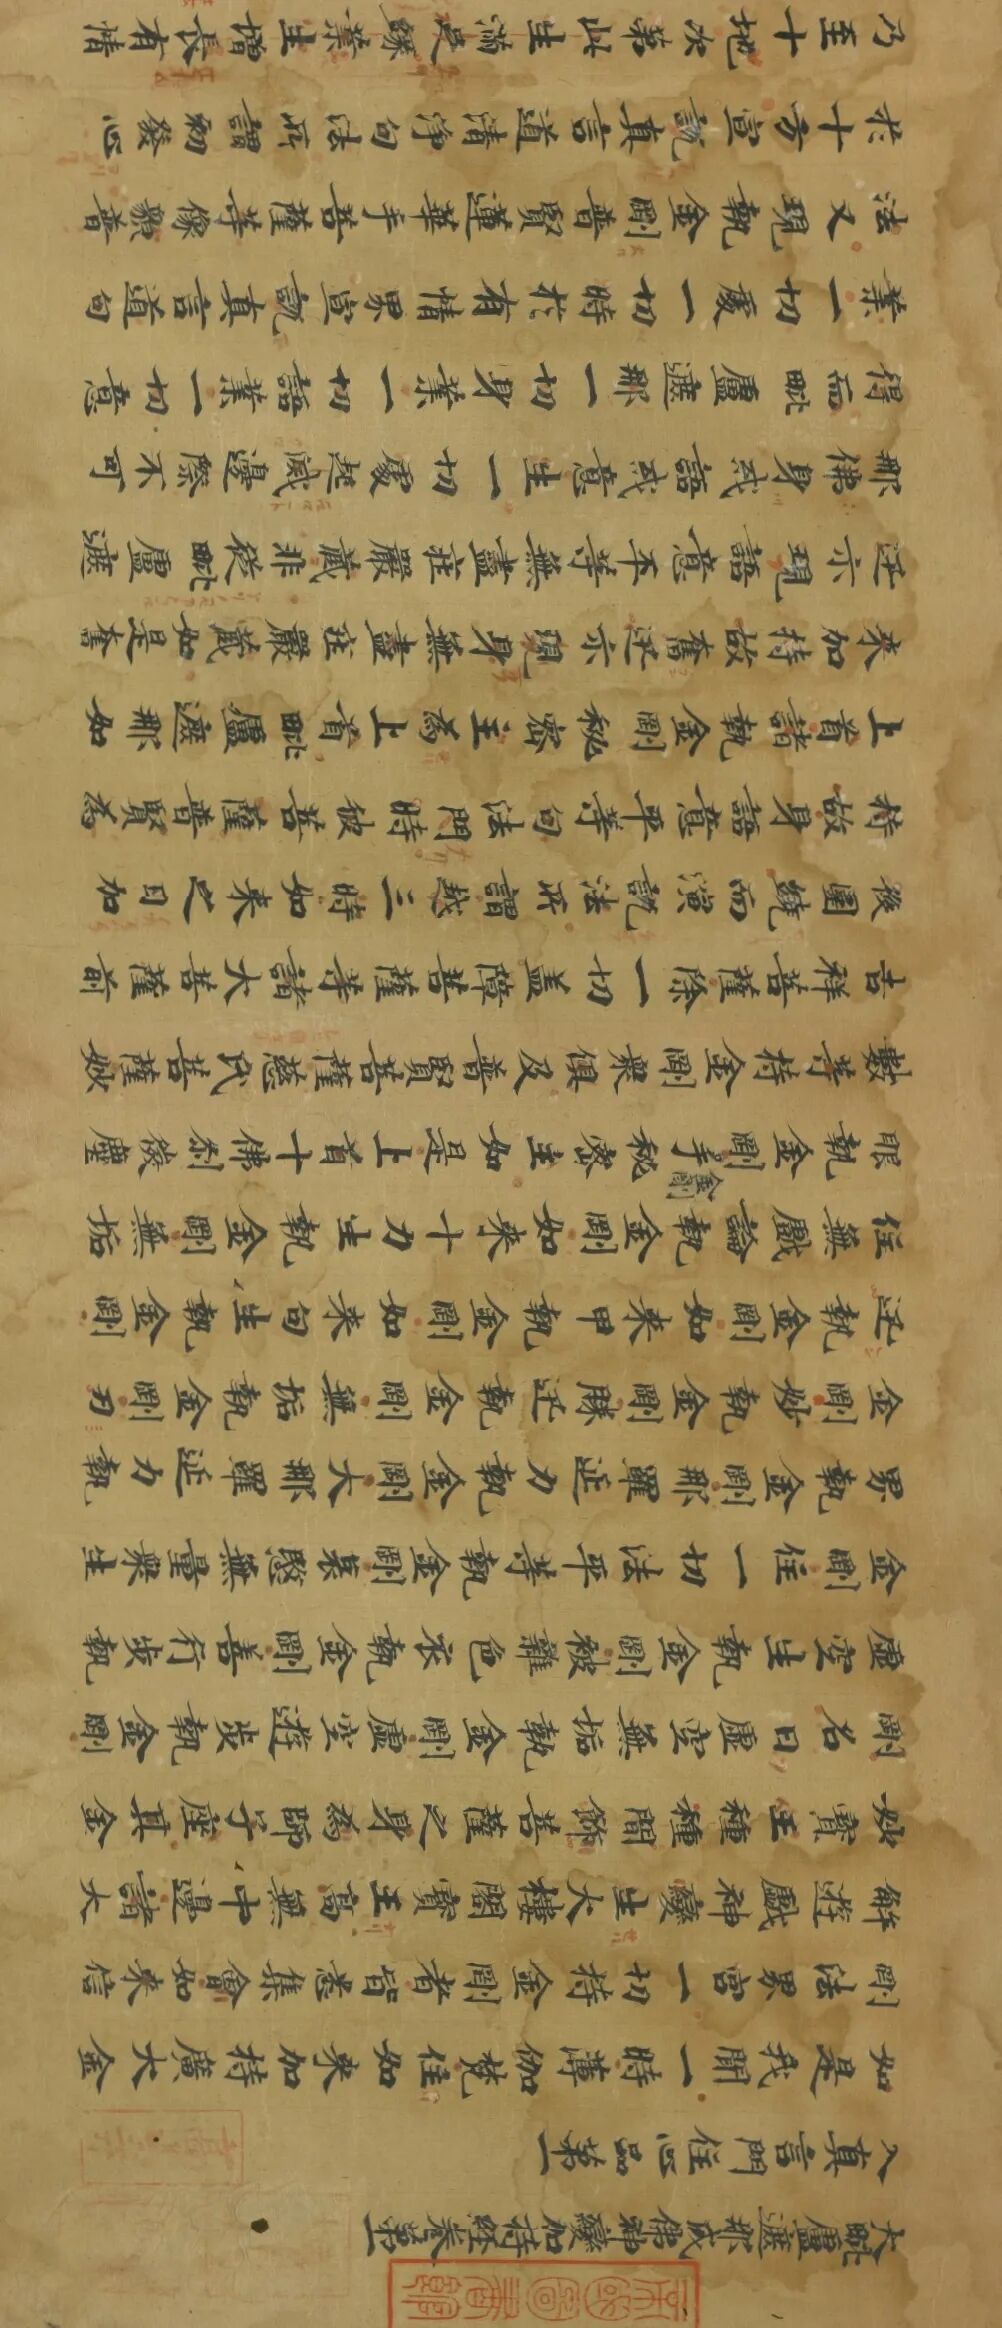 大毗盧遮那成佛神變加持經卷第一
入真言門住心品第一
如是我聞一時薄伽梵住如來加持廣大金
剛法界宮一切持金剛者皆悉集會如來信
解遊戲神變生大樓閣寶王高無中邊諸大
妙寶王種種間飾菩薩之身為師子座其金
剛名曰虛空無垢執金剛虛空遊步執金剛
虛空生執金剛被雜色衣執金剛善行步執
金剛住一切法平等執金剛哀愍無量眾生
界執金剛那羅延力執金剛大那羅延力執
金剛妙執金剛勝迅執金剛無垢執金剛刃
迅執金剛如來甲執金剛如來句生執金剛
住無戲論執金剛如來十力生執金剛無垢
眼執金剛金剛手秘密主如是上首十佛剎微塵
數等持金剛眾俱及普賢菩薩慈氏菩薩妙
吉祥菩薩除一切蓋障菩薩等諸大菩薩前
後圍繞而演說法所謂越三時如來之日加
持故身語意平等句法門時彼菩薩普賢為
上首諸執金剛秘密主為上首毗盧遮那如
來加持故奮迅示現身無盡莊嚴藏如是奮
迅示現語意平等無盡莊嚴藏非從毗盧遮
那佛身或語或意生一切處起滅邊際不可
得而毗盧遮那一切身業一切語業一切意
業一切處一切時於有情界宣說真言道句
法又現執金剛普賢蓮華手菩薩等像貌普
於十方宣說真言道清淨句法所謂初發心
乃至十地次第此生滿足緣業生增長有情